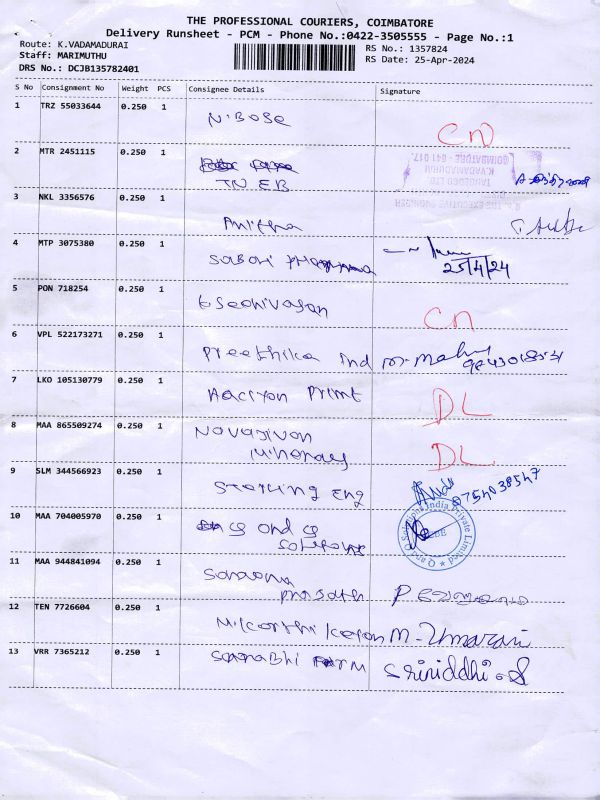 THE PROFESSIONAL COURIERS, COIMBATORE
Delivery Runsheet - PCM - Phone No.:0422-3505555 - Page No.:1
Route: K.VADAMADURAI
RS No.: 1357824
Staff: MARIMUTHU
RS Date: 25-Apr-2024
DRS No.: DCJB135782401
S No Consignment No Weight PCS Consignee Details Signature
1 TRZ 55033644 0.250 1 N.BOSE CN
2 MTR 2451115 0.250 1 TN EB
COIMBATORE - 641 017.
K.VADAMADURAI
TANGEDCO LTD
3 NKL 3356576 0.250 1 Anitha
4 MTP 3075380 0.250 1 Sabari
25/4/24
5 PON 718254 0.250 1 CN
6 VPL 522173271 0.250 1 Preethika Ind
7 LKO 105130779 0.250 1 Print DL
8 MAA 865509274 0.250 1 DL
9 SLM 344566923 0.250 1 Eng
10 MAA 704005970 0.250 1 and
Q and Q Solutions India Private Limited
11 MAA 944841094 0.250 1 prasath
12 TEN 7726604 0.250 1 M.Karthikeyan M-Umarani
13 VRR 7365212 0.250 1 Sriniddhi.S